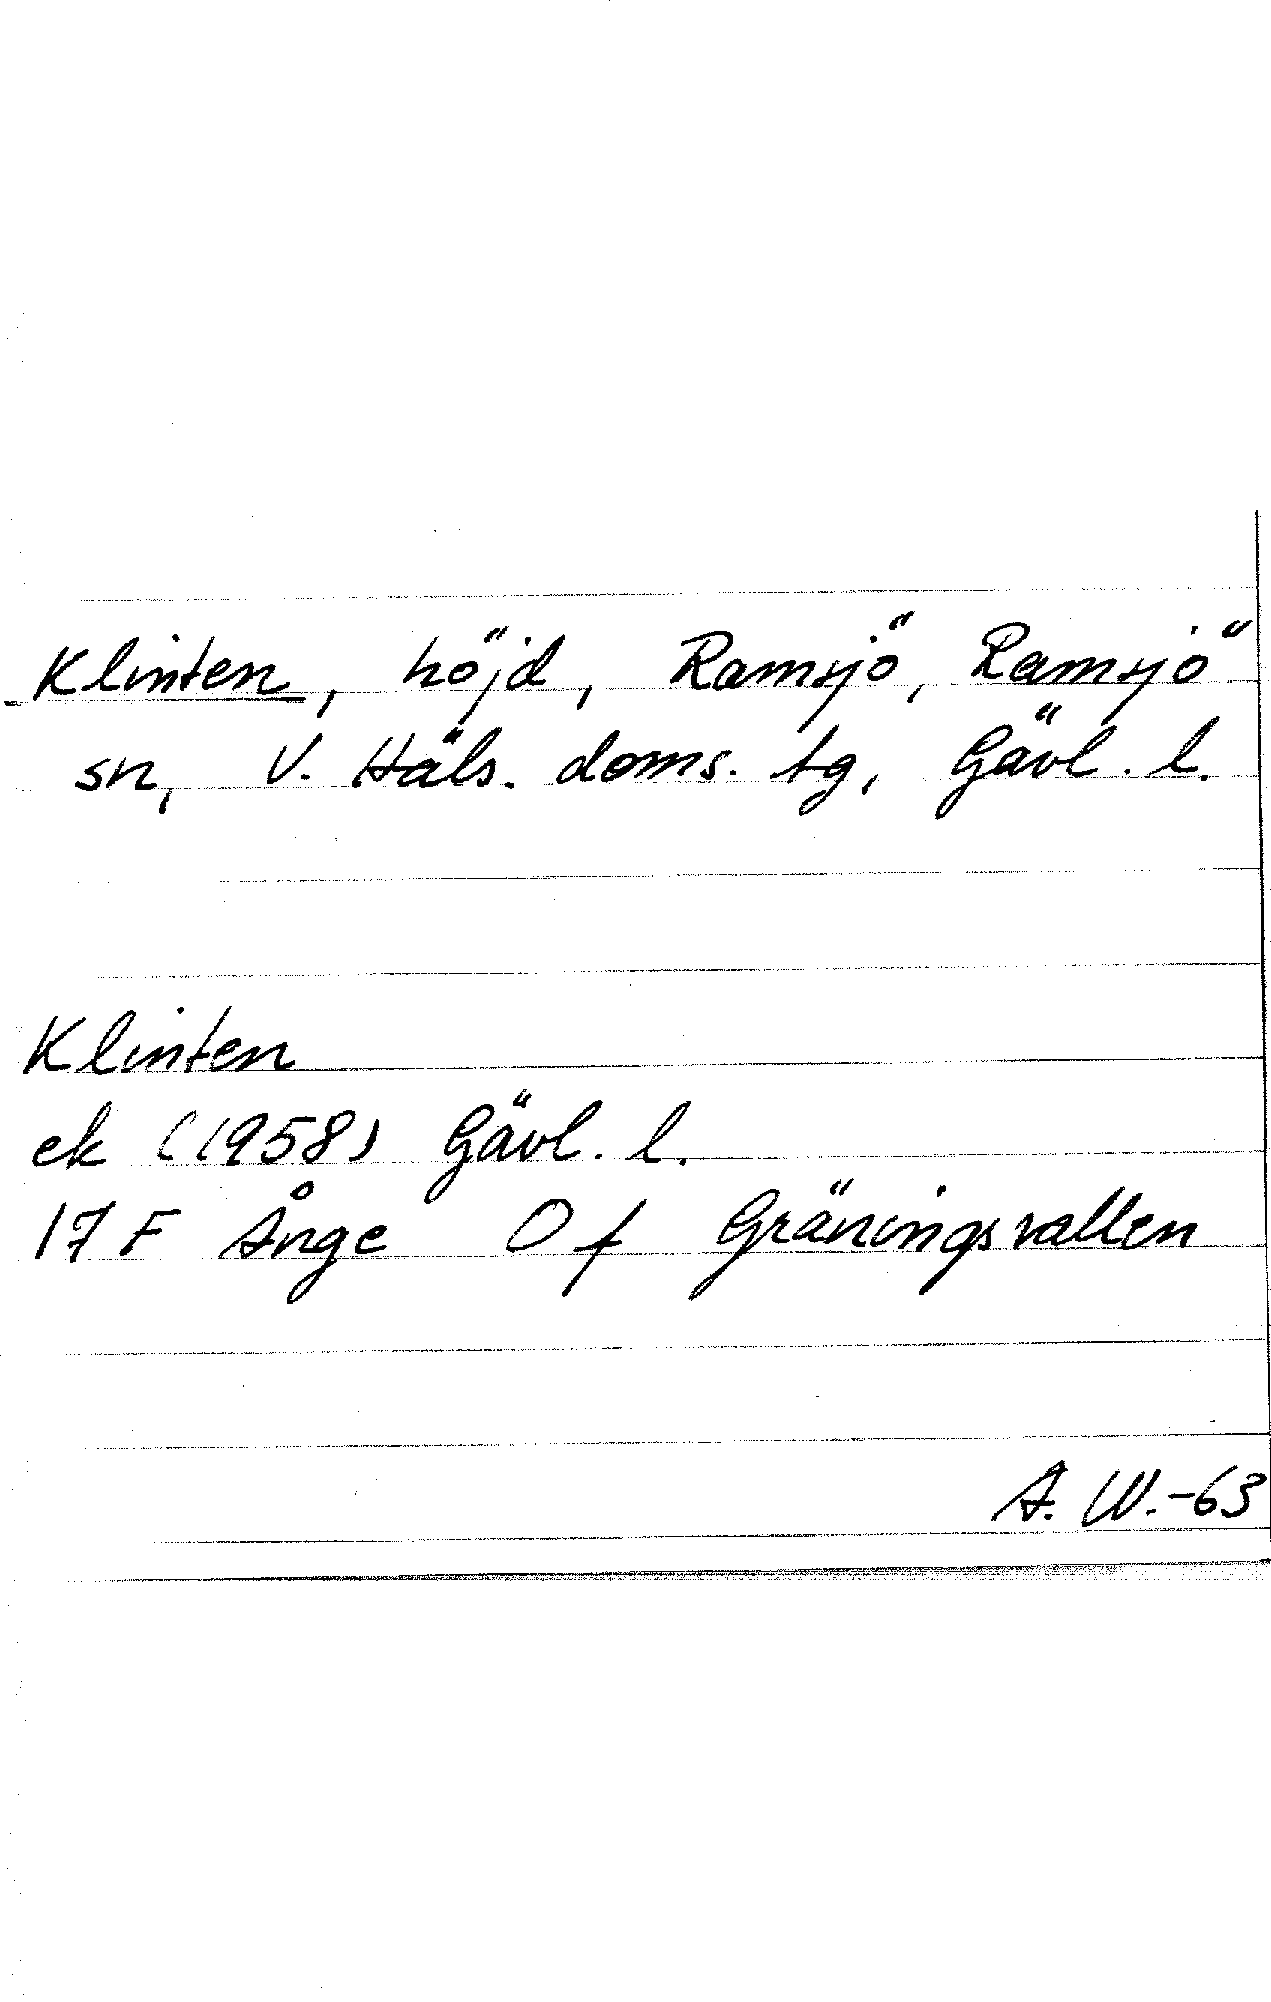 Klinten, höjd, Ramsjö, Ramsjö
sn, V. Häls. doms. tg, Gävl. l.
Klinten
ek (1958) Gävl. l.
17 F Ånge 0 f Gräningsvallen
A. W.-63